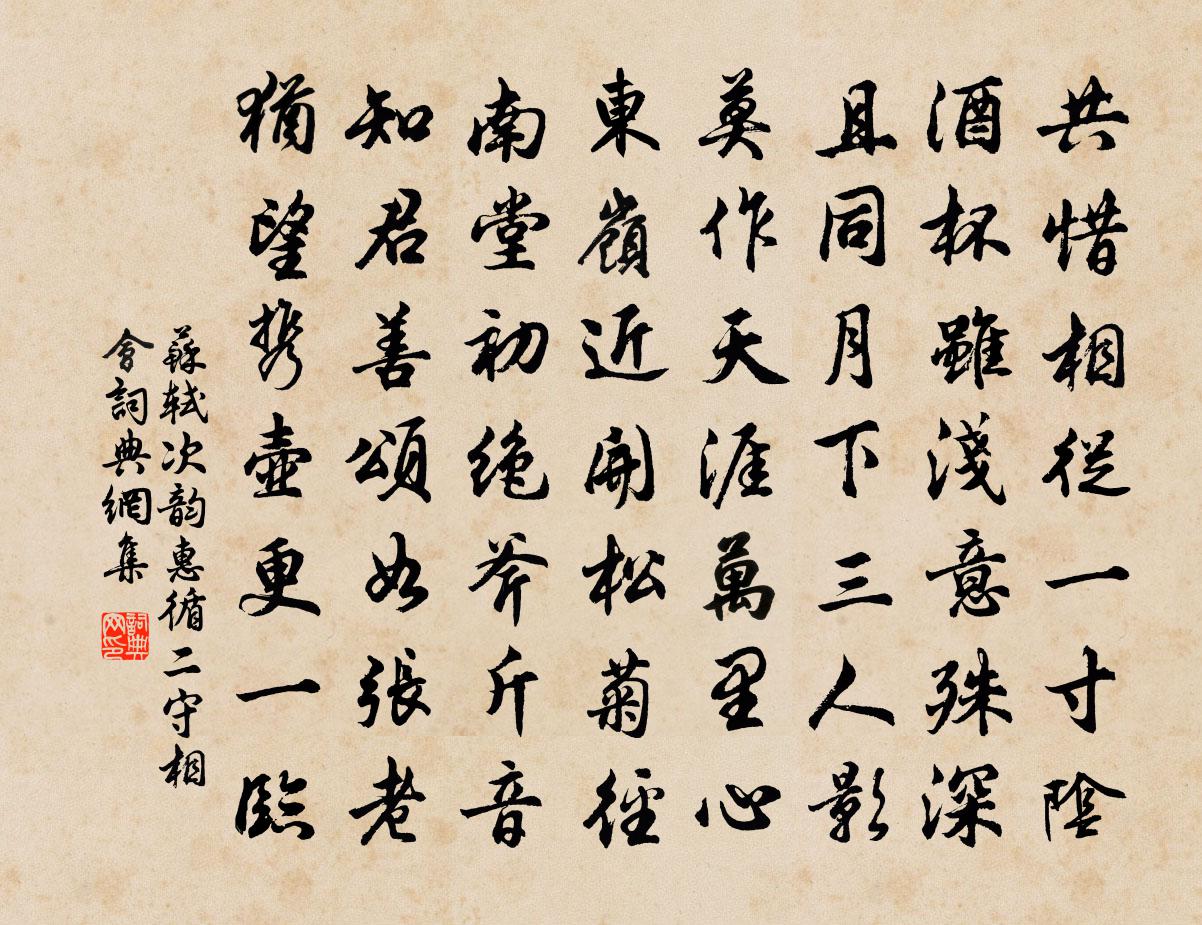 共惜相從一寸陰
酒杯雖淺意殊深
且同月下三人影
莫作天涯萬里心
東嶺近開松菊徑
南堂初絶斧斤音
知君善頌如張老
猶望攜壺更一臨
蘇軾次韵惠循二守相
會詞典網集
詞典网印